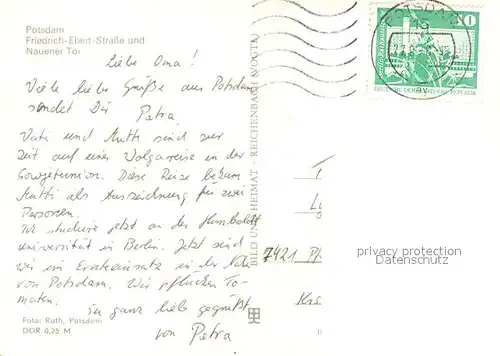 Potsdam
Friedrich-Ebert-Straße und
Nauener Tor
Liebe Oma!
Viele liebe Grüße aus Potsdam
sendet Dir
Petra
Vati und Mutti sind zur
Zeit auf einer Wolgareise in der
Sowjetunion. Diese Reise bekam
Mutti als Auszeichnung für zwei
Personen.
Wir studiere jetzt an der Humboldt
Universität in Berlin. Jetzt sind
wir im Ernteeinsatz in der Nähe
von Potsdam. Wir pflücken To-
maten.
Sei ganz lieb gegrüßt
von Petra
Foto: Roth, Potsdam
DDR 0,25 M
BILD UND HEIMAT · REICHENBACH (VOGTL)
POTSDAM
10
DEUTSCHE DEMOKRATISCHE REPUBLIK
7421
privacy protection
Datenschutz